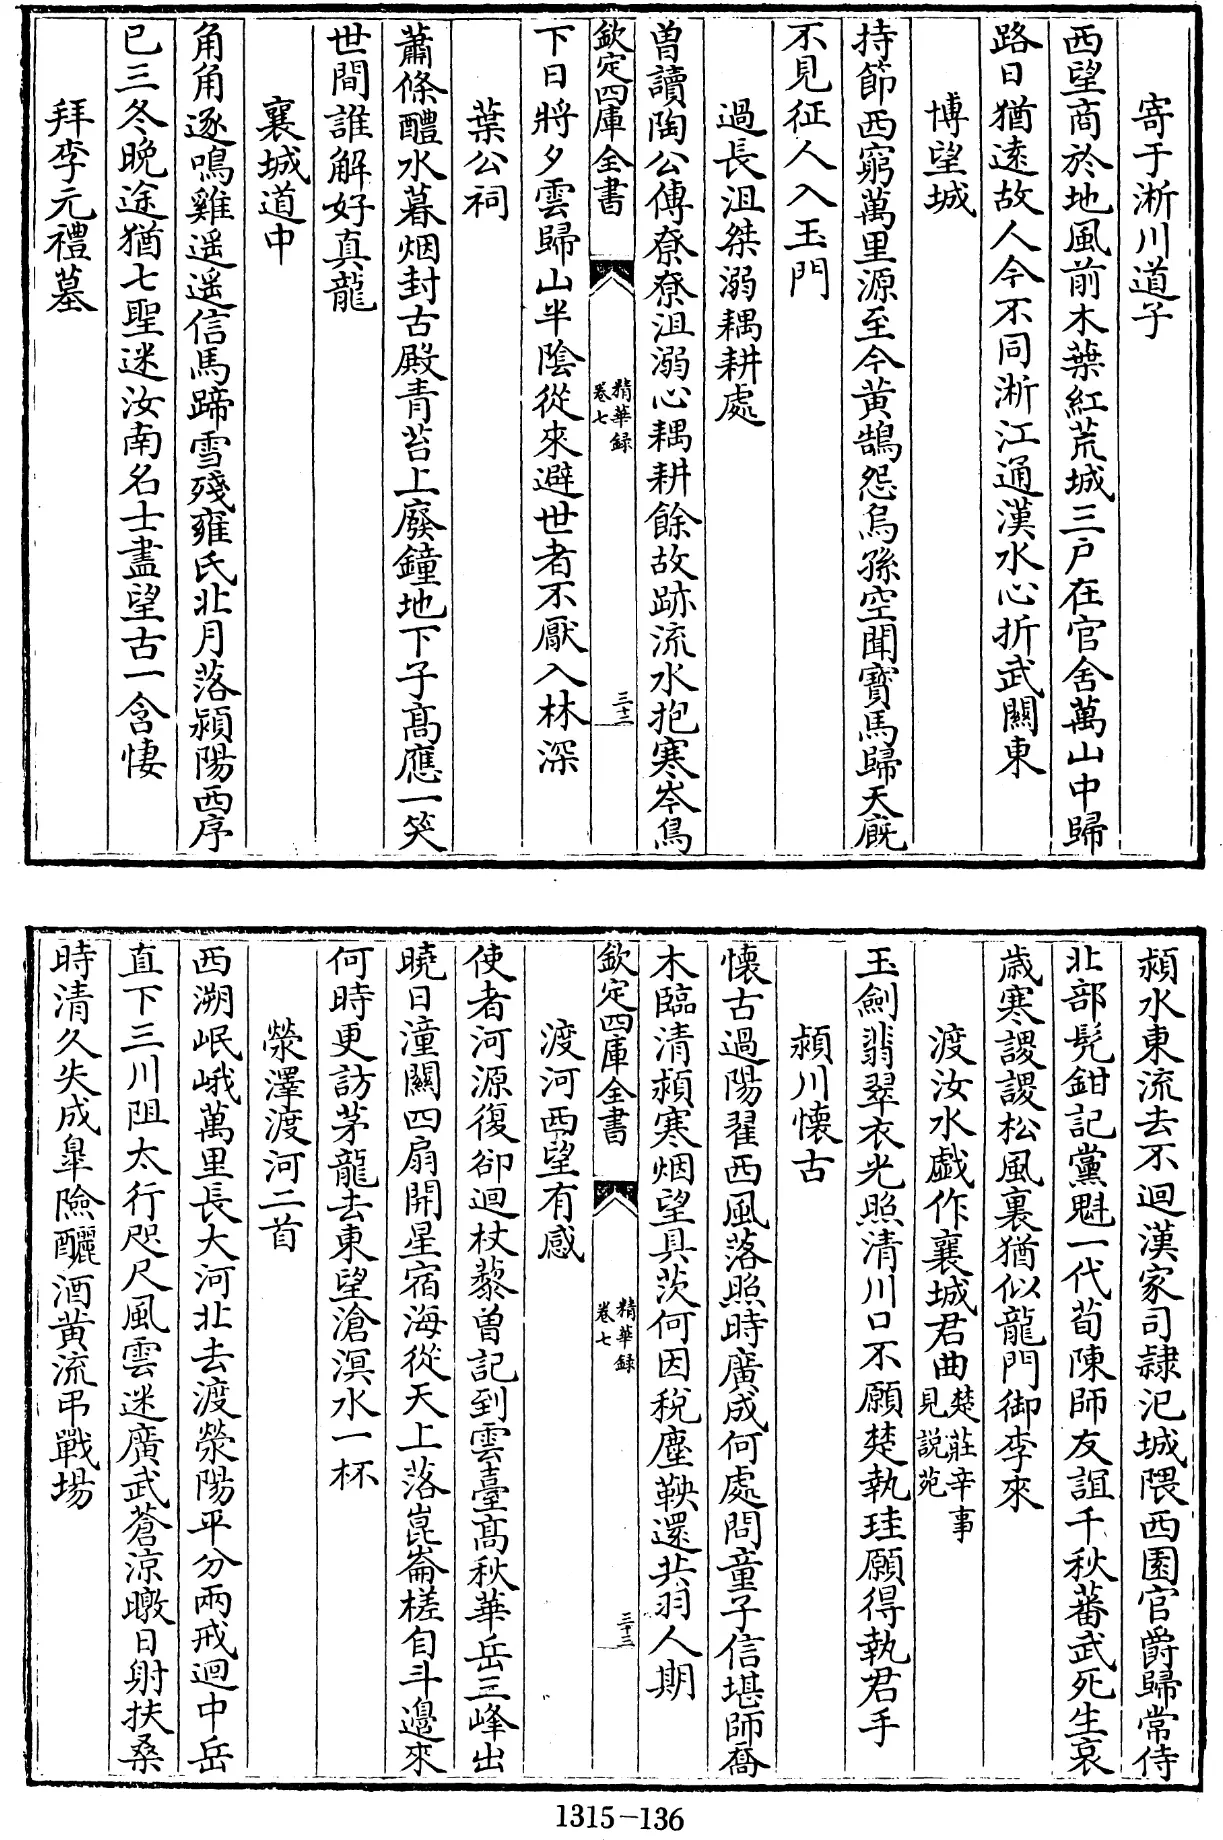 寄于淅川道子
西望商於地風前木葉紅荒城三户在官舍萬山中歸
路日猶遠故人今不同淅江通漢水心折武關東
博望城
持節西窮萬里源至今黄鵠怨烏孫空聞寳馬歸天厩
不見征人入玉門
過長沮桀溺耦耕處
曽讀陶公傳寮寮沮溺心耦耕餘故跡流水抱寒岑鳥
欽定四庫全書
精華録
卷七
三十二
下日將夕雲歸山半陰從來避世者不厭入林深
葉公祠
蕭條醴水暮烟封古殿青苔上廢鐘地下子髙應一笑
世間誰解好真龍
襄城道中
角角逐鳴雞遥遥信馬蹄雪殘雍氏北月落潁陽西序
已三冬晚途猶七聖迷汝南名士盡望古一含悽
拜李元禮墓
潁水東流去不迴漢家司隸氾城隈西園官爵歸常侍
北部髠鉗記黨魁一代荀陳師友誼千秋蕃武死生哀
歲寒謖謖松風裏猶似龍門御李來
渡汝水戯作襄城君曲楚莊辛事見説苑
玉劍翡翠衣光照清川口不願楚執珪願得執君手
潁川懐古
懐古過陽翟西風落照時廣成何處問童子信堪師喬
木臨清潁寒烟望具茨何因税塵鞅還共羽人期
欽定四庫全書
精華録
卷七
三十三
渡河西望有感
使者河源復卻迴杖藜曽記到雲臺髙秋華岳三峰出
曉日潼關四扇開星宿海從天上落崑崙槎自斗邊來
何時更訪茅龍去東望滄溟水一杯
滎澤渡河二首
西溯岷峨萬里長大河北去渡滎陽平分兩戒迴中岳
直下三川阻太行咫尺風雲迷廣武蒼涼暾日射扶桑
時清久失成臯險釃酒黄流弔戰場
1315-136